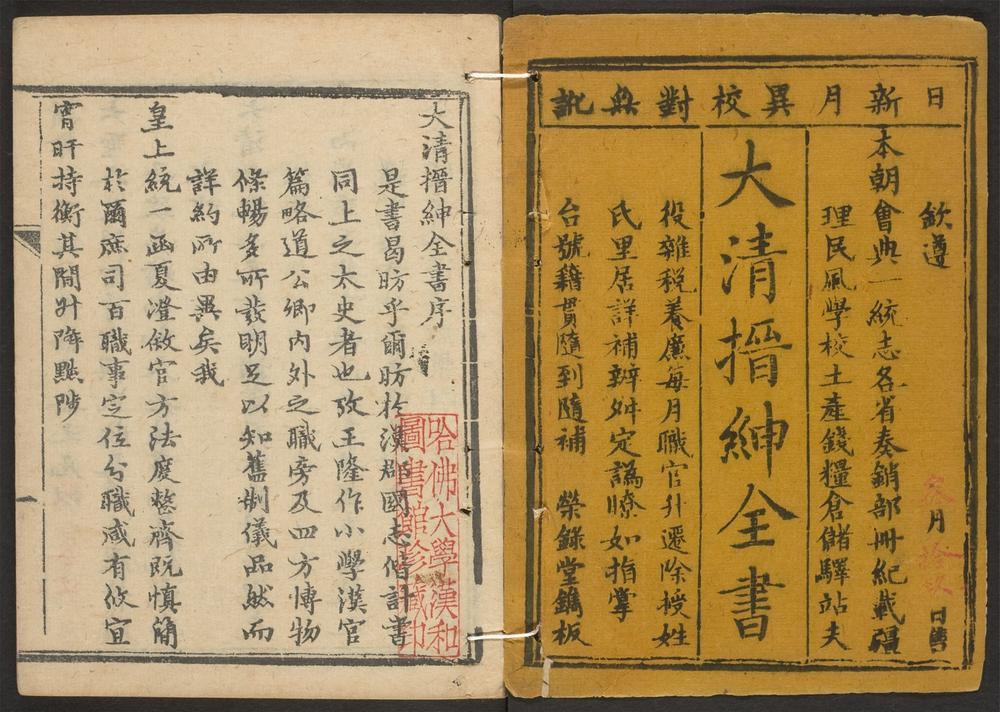 日新月異校對無訛
欽遵
本朝會典一統志各省奏銷部冊紀載疆
理民風學校土產錢糧倉儲驛站夫
大清搢紳全書
役雜稅養廉每月職官升遷除授姓
氏里居詳補辨舛定譌瞭如指掌
台號籍貫隨到隨補 榮錄堂鐫板
月
大清搢紳全書序
是書曷昉乎爾昉於漢郡國志偕計書
同上之太史者也攷王隆作小學漢官
篇略道公卿內外之職旁及四方博物
條暢多所發明足以知舊制儀品然而
詳約所由異矣我
皇上統一函夏澄敘官方法度整齊既慎簡
於爾庶司百職事定位分職咸有攸宜
宵旰持衡其間升降黜陟
哈佛大學漢和
圖書館珍藏印